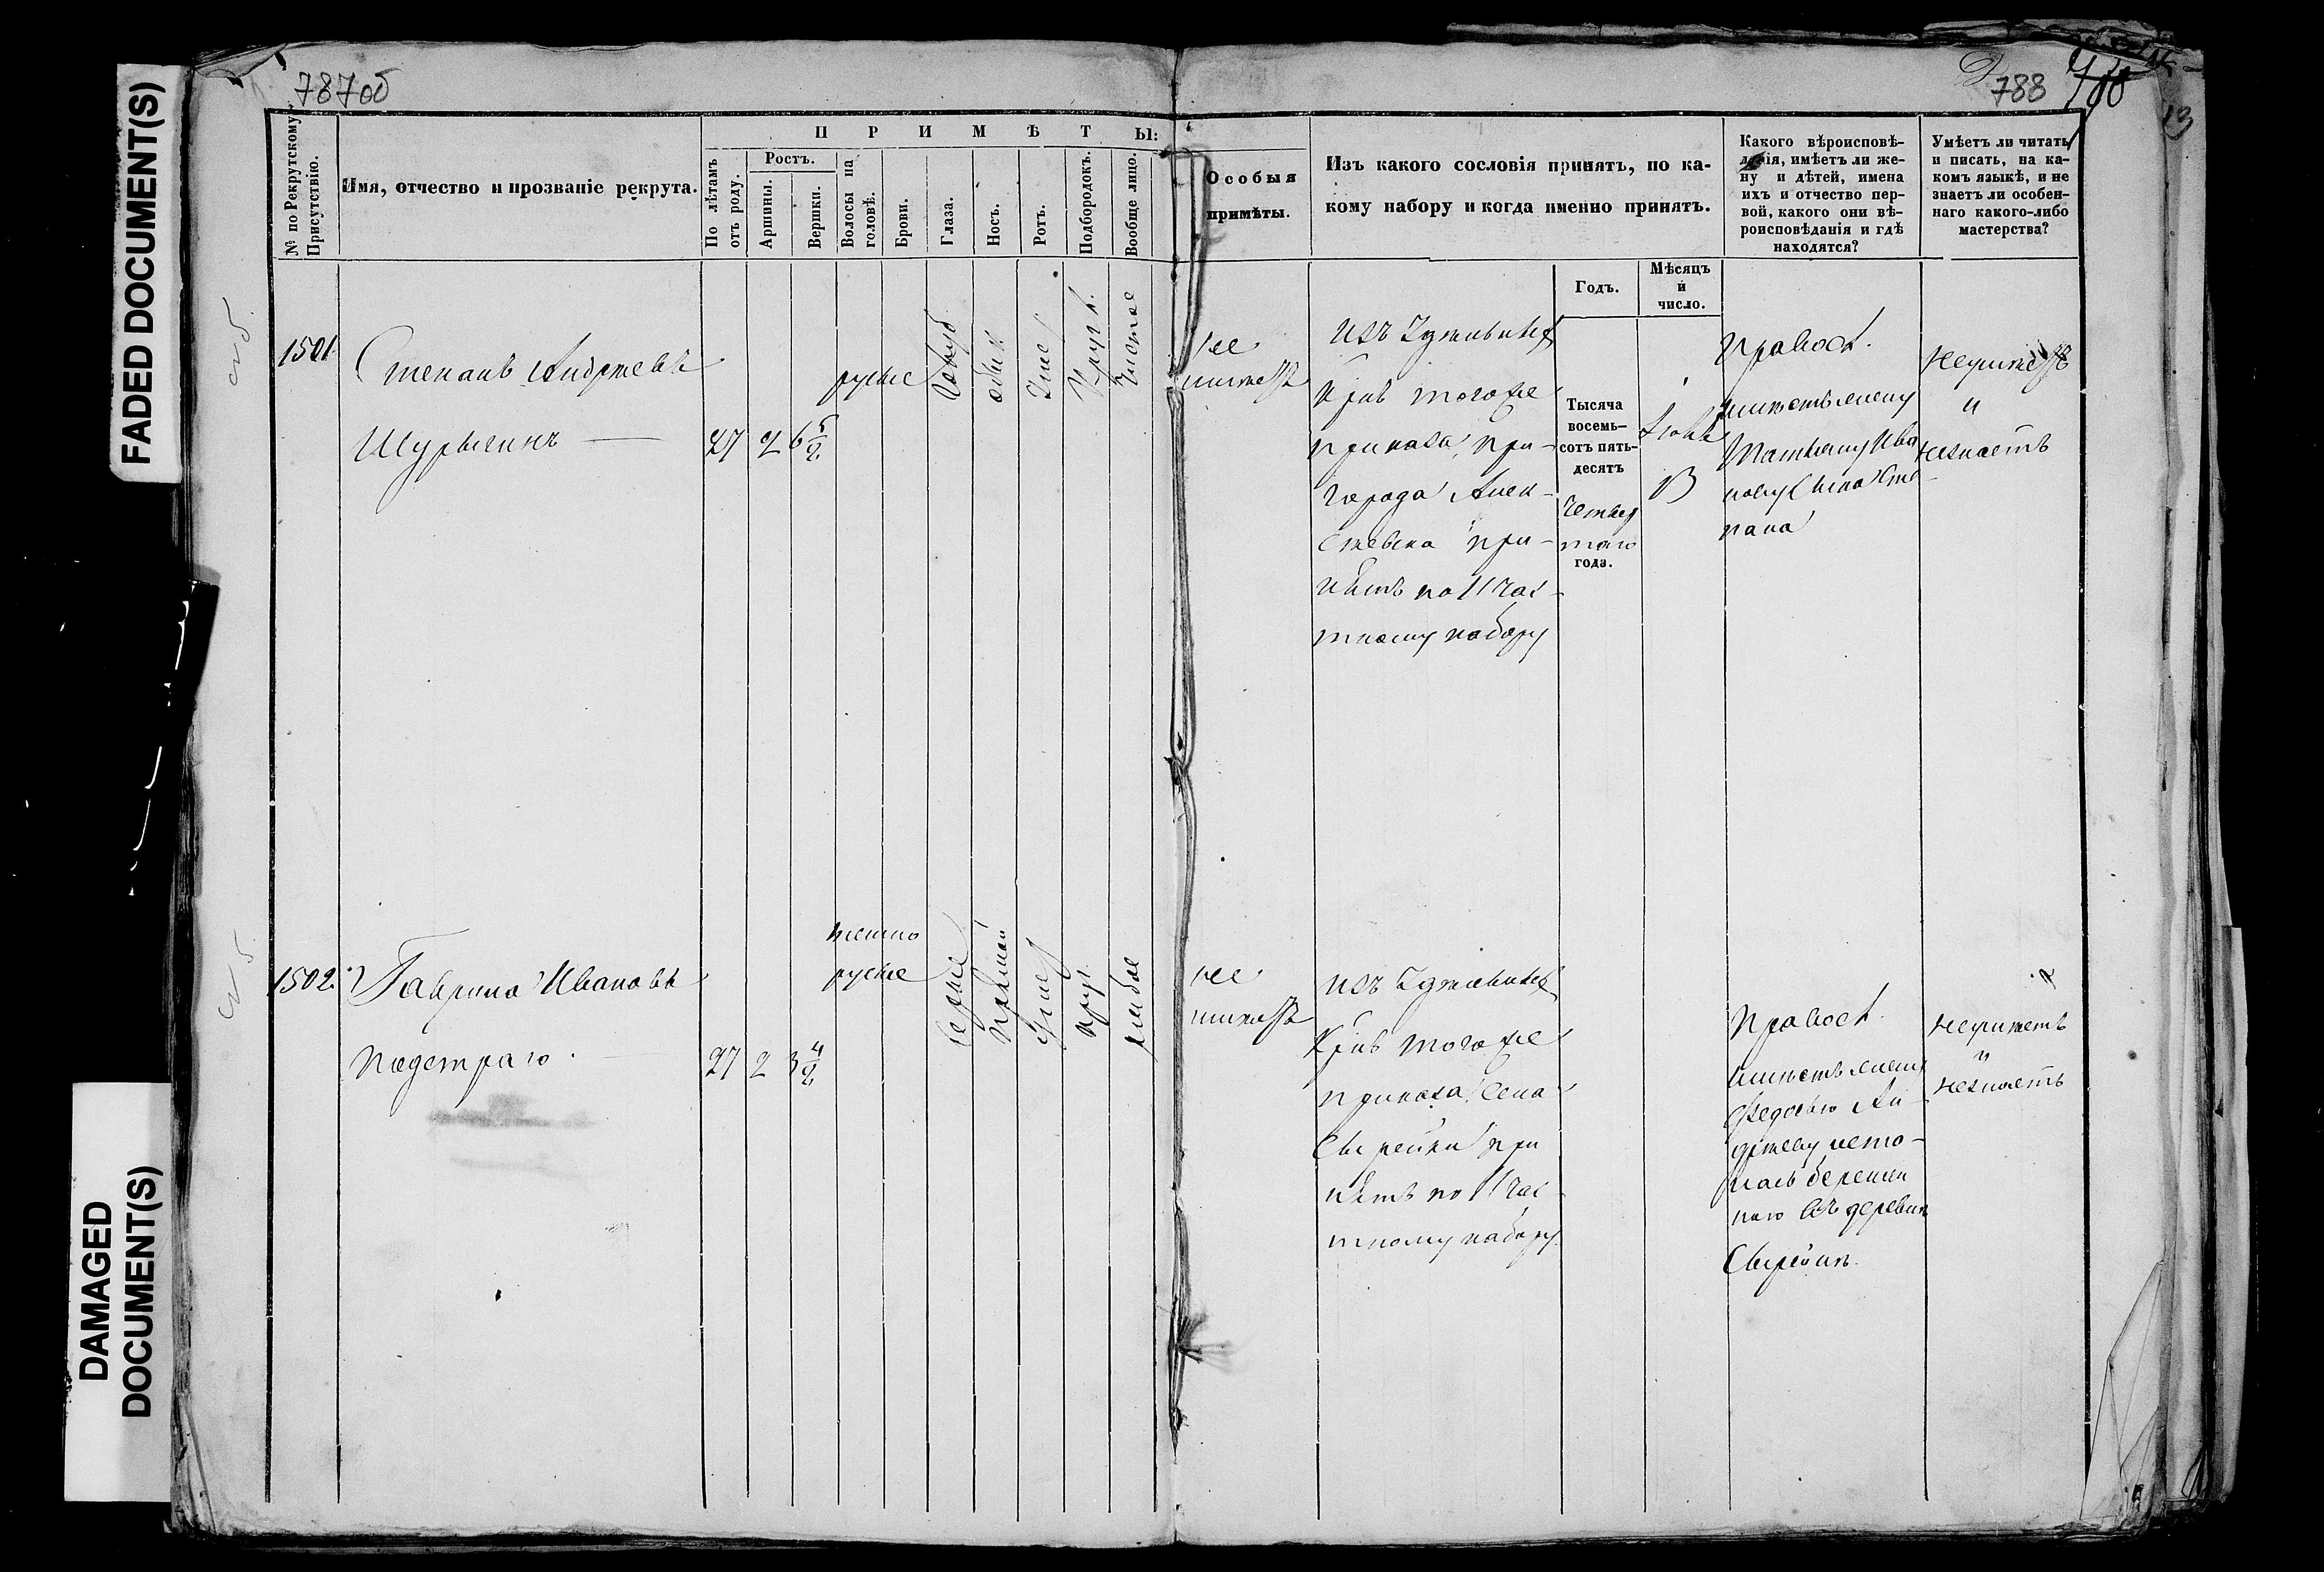 FADED DOCUMENT(S)
DAMAGED
DOCUMENT(S)
787об
788
13
П Р И М Ѣ Т Ы:
№ по Рекрутскому
Присутствію.
Имя, отчество и прозваніе рекрута.
По лѣтамъ
отъ роду.
Ростъ.
Аршины.
Вершки.
Волосы на
головѣ.
Брови.
Глаза.
Носъ.
Ротъ.
Подбородокъ.
Вообще лицо.
Особыя
примѣты.
Изъ какого сословія принятъ, по ка-
кому набору и когда именно принятъ.
Годъ.
Мѣсяцъ
и
число.
Какого вѣроисповѣ-
данія, имѣетъ ли же-
ну и дѣтей, имена
ихъ и отчество пер-
вой, какого они вѣ-
роисповѣданія и гдѣ
находятся?
Умѣетъ ли читать
и писать, на ка-
комъ языкѣ, и не
знаетъ ли особен-
наго какого-либо
мастерства?
1501.
Степанъ Андреевъ
27 2 6 5/2
русые
чистое
не
имѣетъ
Изъ
Крив тогоже
приказа, при-
города Алек-
сѣевска при-
нятъ по 11 час-
тному набору
Тысяча
восемь-
сотъ пять-
десятъ
четвер
таго
года.
13
Правосл.
имѣетъ жену
Татьяну Ива
нову сына Сте
пана
Неумѣетъ
и
незнаетъ
1502.
Гаврила Ивановъ
27 2 3 4/2
темно
русые
Серые
прямой
круг.
рябое
не
имѣетъ
Изъ
Крив тогоже
приказа, села
при
нятъ по 11 час
тному набору.
Правосл.
имѣетъ жену
Федосью Ан
дрееву
въ деревнѣ
неумѣетъ
и
незнаетъ